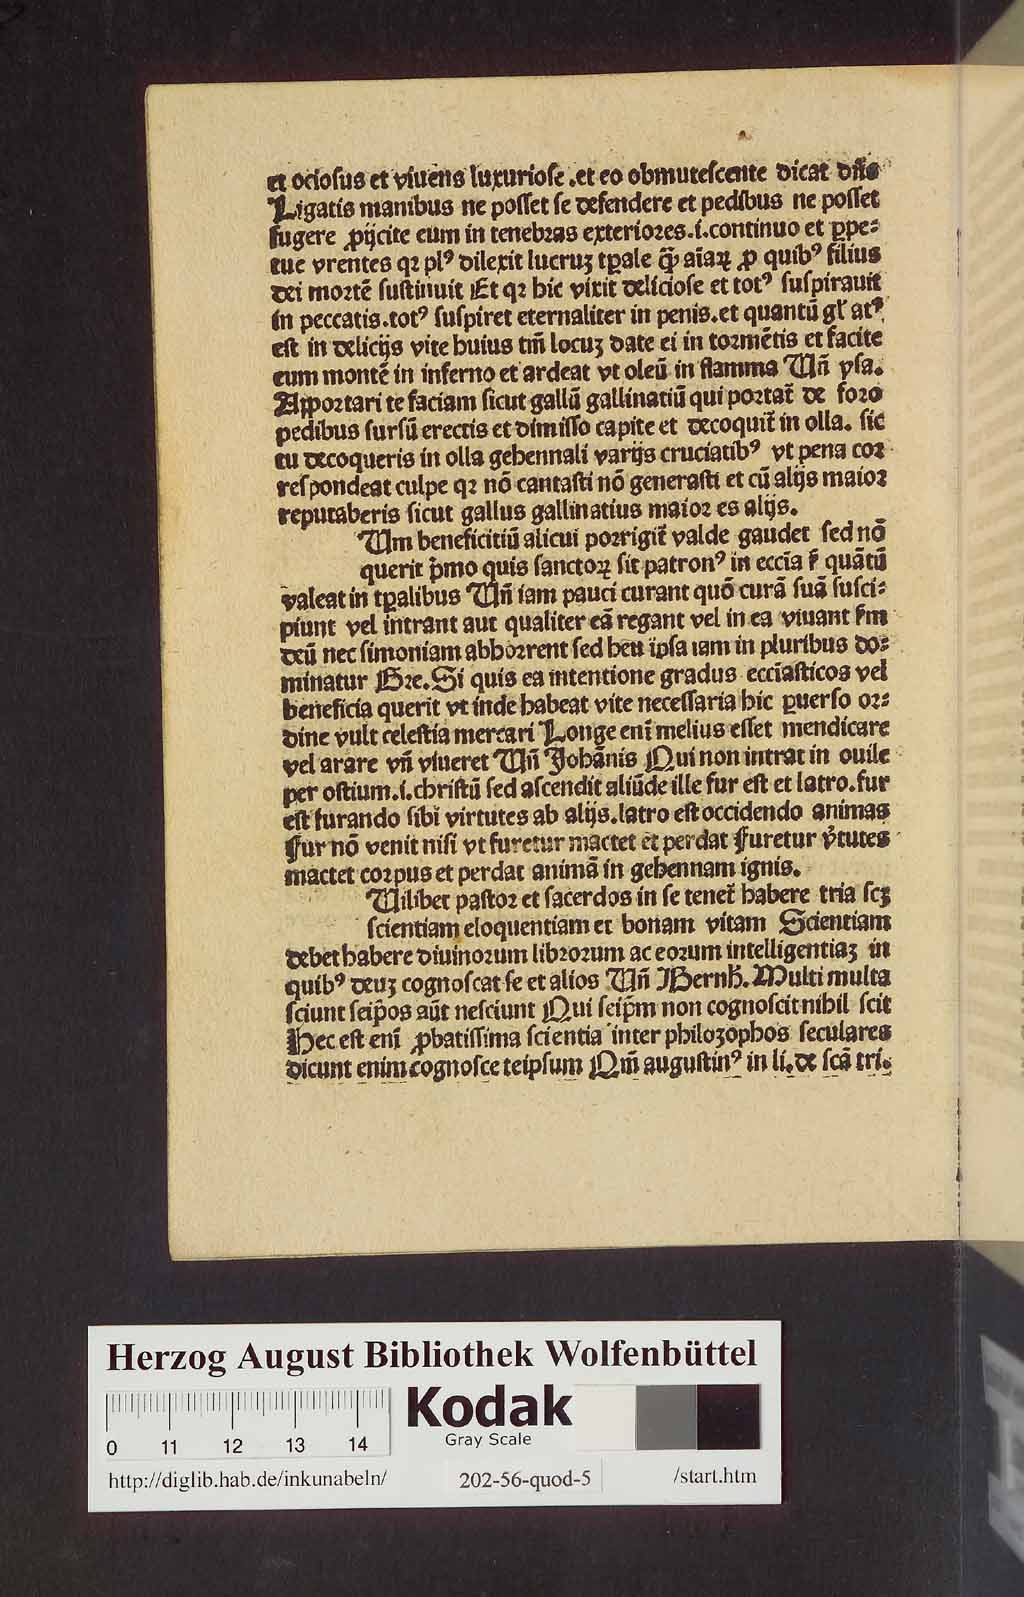 et ociosus et viuens luxuriose .et eo obmutescente dicat dn̄s
Ligatis manibus ne posset se defendere et pedibus ne posset
fugere ꝓijcite eum in tenebras exteriores.i.continuo et ꝑpe⸗
tue vrentes qꝛ plꝰ dilexit lucruꝫ tꝑale q̄ꝫ aīaꝝ ꝓ quibꝰ filius
dei mortē sustinuit Et qꝛ hic vixit deliciose et totꝰ suspirauit
in peccatis.totꝰ suspiret eternaliter in penis.et quantū gl̄atꝰ
est in delicijs vite huius tm̄ locuꝫ date ei in tormētis et facite
eum montē in inferno et ardeat vt oleū in flamma Un̄ ysa.
Apportari te faciam sicut gallū gallinatiū qui portat̄ de foro
pedibus sursū erectis et dimisso capite et decoquit̄ in olla. sic
tu decoqueris in olla gehennali varijs cruciatibꝰ vt pena cor
respondeat culpe qꝛ nō cantasti nō generasti et cū alijs maior
reputaberis sicut gallus gallinatius maior es alijs.
Um beneficitiū alicui porrigit̄ valde gaudet sed nō
querit p̄mo quis sanctoꝝ sit patronꝰ in eccīa ẜ quātū
valeat in tꝑalibus Un̄ iam pauci curant quō curā suā susci⸗
piunt vel intrant aut qualiter eā regant vel in ea viuant ẜm
deū nec simoniam abhorrent sed heu ipsa iam in pluribus do⸗
minatur Gre.Si quis ea intentione gradus eccīasticos vel
beneficia querit vt inde habeat vite necessaria hic ꝑuerso or⸗
dine vult celestia mercari Longe enī melius esset mendicare
vel arare vn̄ viueret Un̄ Johānis Qui non intrat in ouile
per ostium.i.christū sed ascendit aliūde ille fur est et latro.fur
est furando sibī virtutes ab alijs.latro est occidendo animas
Fur nō venit nisi vt furetur mactet et perdat Furetur v̄tutes
mactet corpus et perdat animā in gehennam ignis.
Uilibet pastor et sacerdos in se tenet̄ habere tria scꝫ
scientiam eloquentiam et bonam vitam Scientiam
debet habere diuinorum librorum ac eorum intelligentiaꝫ in
quibꝰ deuꝫ cognoscat se et alios Un̄ Bernh̄. Multi multa
sciunt seip̄os aūt nesciunt Qui seip̄m non cognoscit nihil scit
Hec est enī ꝓbatissima scientia inter philozophos seculares
dicunt enim cognosce teipsum Qm̄ augustinꝰ in li. de scā tri.
Herzog August Bibliothek Wolfenbüttel
Kodak
Gray Scale
0 11 12 13 14
http://diglib.hab.de/inkunabeln/ 202-56-quod-5 /start.htm